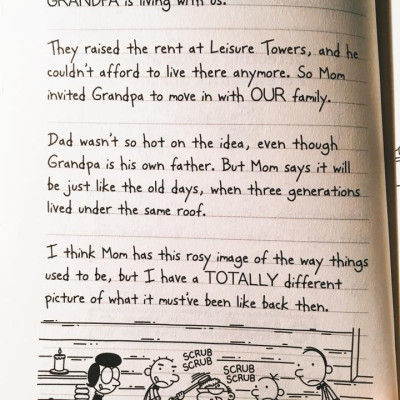 GRANDPA is living with us.
They raised the rent at Leisure Towers, and he
couldn't afford to live there anymore. So Mom
invited Grandpa to move in with OUR family.
Dad wasn't so hot on the idea, even though
Grandpa is his own father. But Mom says it will
be just like the old days, when three generations
lived under the same roof.
I think Mom has this rosy image of the way things
used to be, but I have a TOTALLY different
picture of what it must've been like back then.
SCRUB
SCRUB
SCRUB
SCRUB